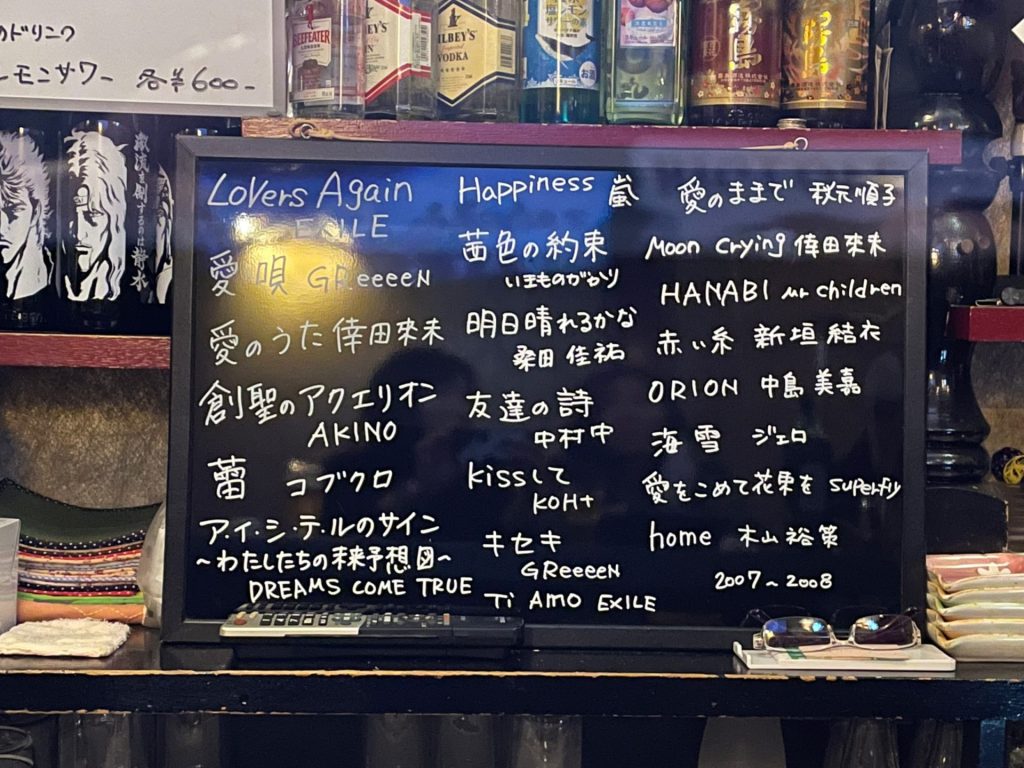 のドリンク
ーモンサワー 各¥600-
BEEFEATER
ILBEY'S
VODKA
激流を制するのは静水
Lovers Again
EXILE
愛唄 GReeeeN
愛のうた 倖田來未
創聖のアクエリオン
AKINO
蕾 コブクロ
ア・イ・シ・テ・ルのサイン
~わたしたちの未来予想図~
DREAMS COME TRUE
Happiness 嵐
茜色の約束
いきものがかり
明日晴れるかな
桑田佳祐
友達の詩
中村中
kissして
KOH+
キセキ
GReeeeN
Ti AMO EXILE
愛のままで 秋元順子
Moon Crying 倖田來未
HANABI Mr children
赤い糸 新垣結衣
ORION 中島美嘉
海雪 ジェロ
愛をこめて花束を superfly
home 木山裕策
2007~2008